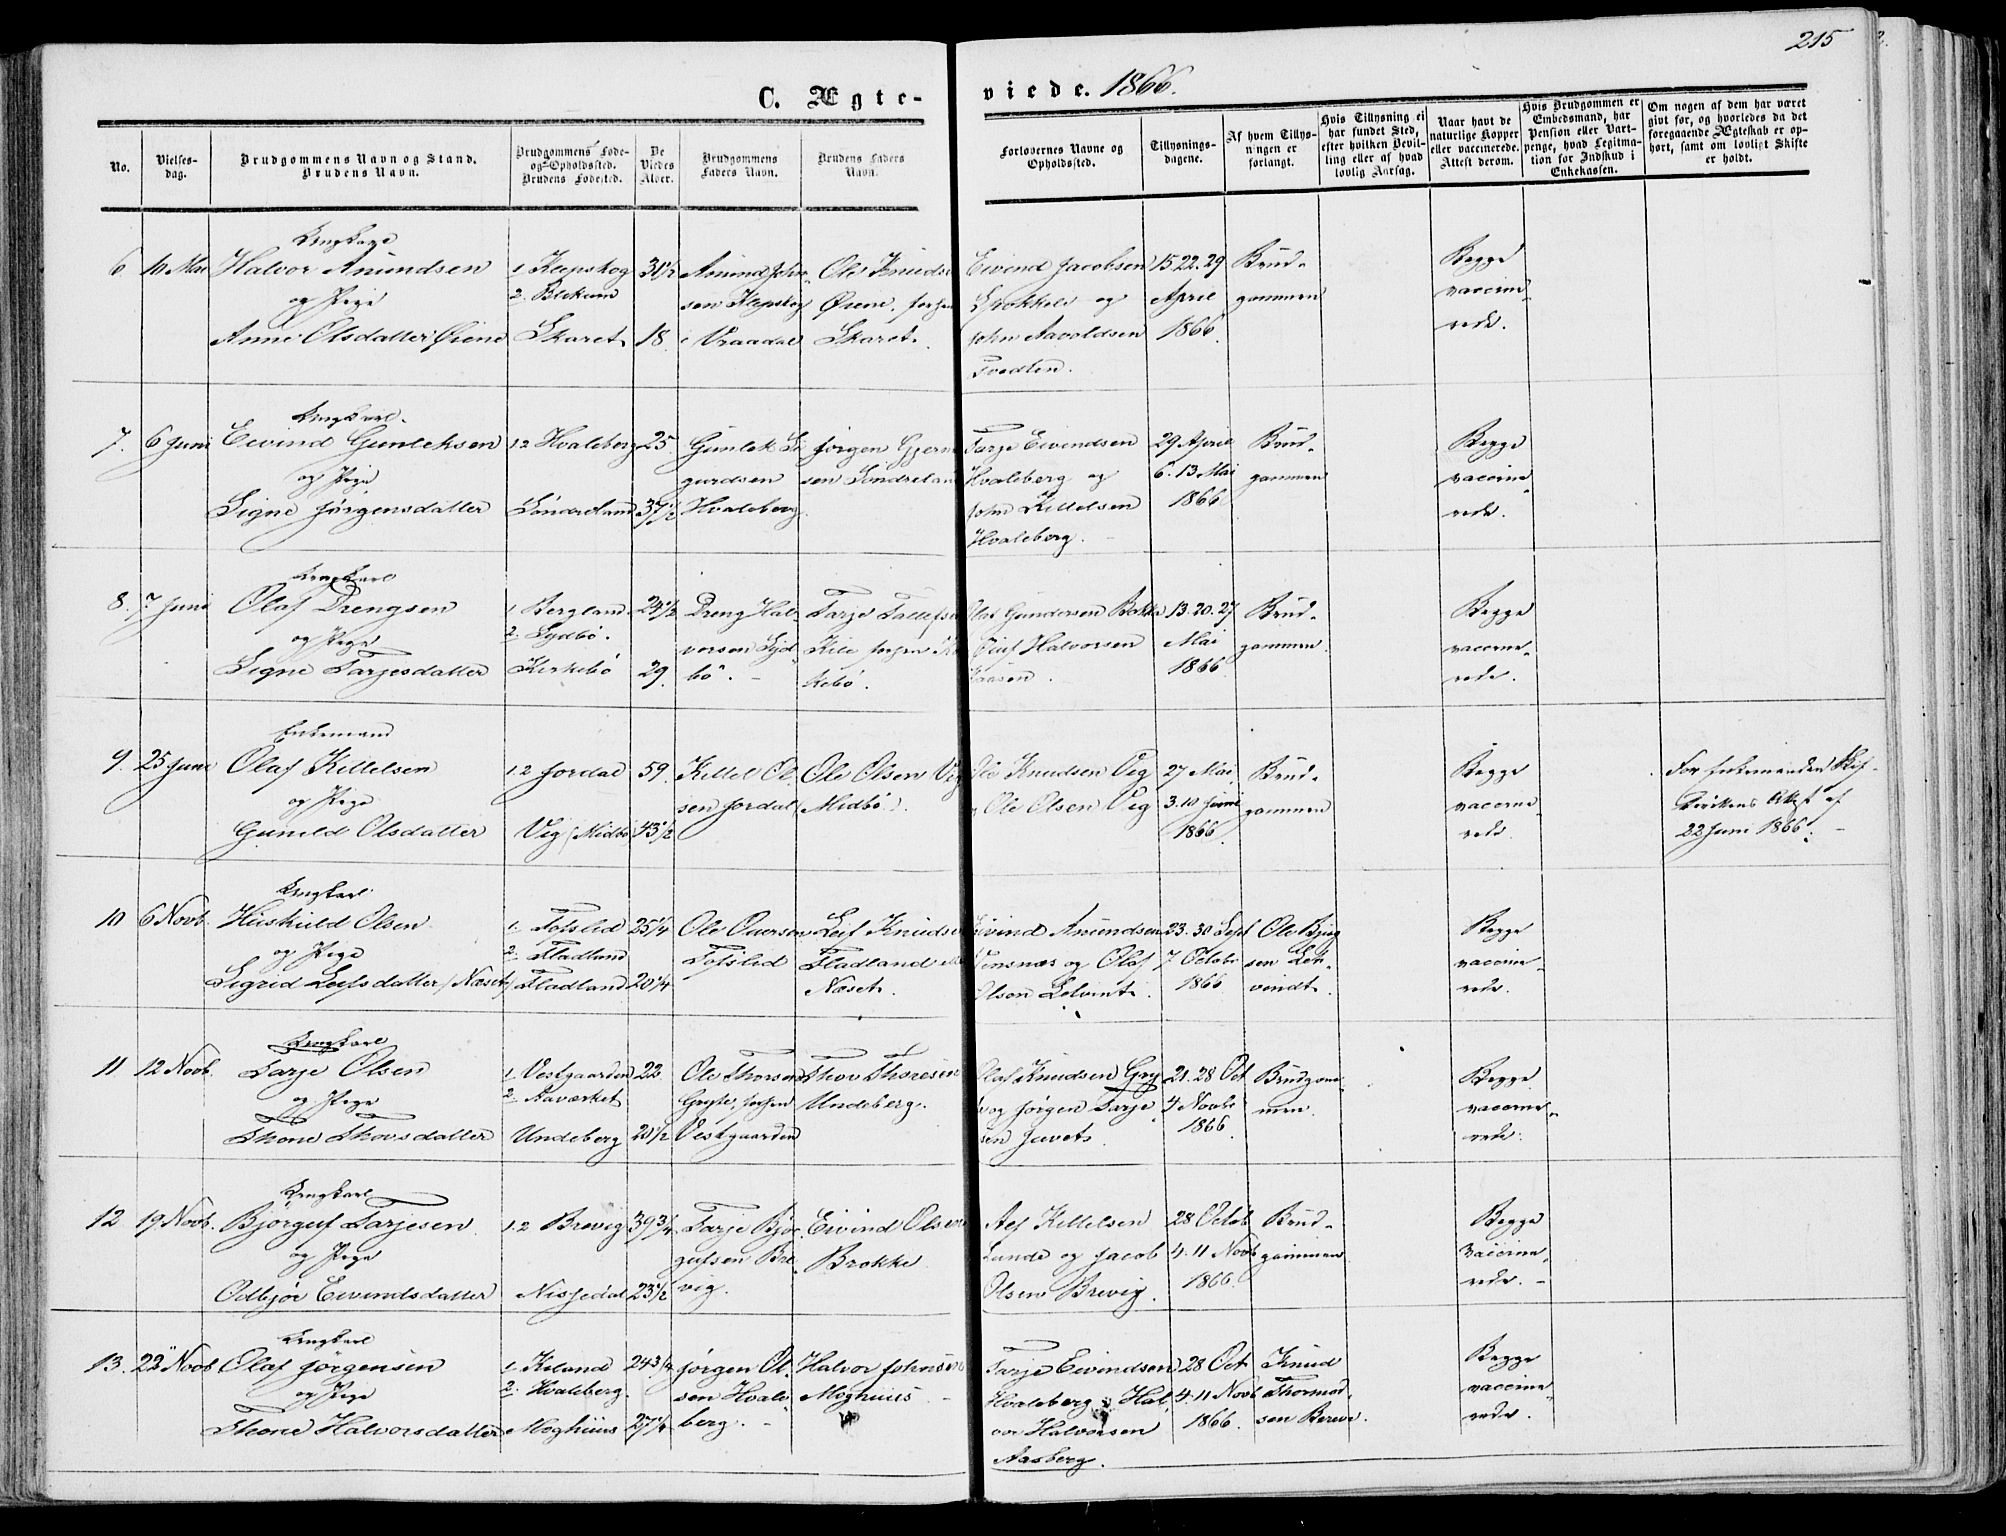 215
C. Ægte-
viede. 1866.
No.
Vielses-
dag.
Brudgommens Navn og Stand.
Brudens Navn.
Brudgommens Føde-
og Opholdssted.
Brudens Fødested.
De
Viedes
Alder.
Brudgommens
Faders Navn.
Brudens Faders
Navn.
Forlovernes Navne og
Opholdssted.
Tillysnings-
dagene.
Af hvem Tillys-
ningen er
forlangt.
Hvis Tillysning ei
har fundet Sted,
efter hvilken Bevil-
ling eller af hvad
lovlig Aarsag.
Naar havt de
naturlige Kopper
eller vaccinerede.
Attest derom.
Hvis Brudgommen er
Embedsmand, har
Pension eller Vart-
penge, hvad Legitma-
tion for Indskud i
Enkekassen.
Om nogen af dem har været
givt for, og hvorledes da det
foregaaende Ægteskab er op-
hørt, samt om lovligt Skifte
er holdt.
6
10 Mai
Ungkarl
Halvor Anundsen
og Pige
Anne Olsdatter Øiene
1. Klepskog
Skaret
31 1/2
18
Anund Joh-
sen Klepskog
i Vraadal
Ole Knuds
Øiene
Skaret
Eivind Jacobsen
og
John Aavoldsen
Tvedten.
15. 22. 29
April
1866
Brud-
gommen
Begge
vaccine-
rede.
7.
6 Juni
Ungkarl
Eivind Gunleksen
og Pige
Signe Jørgensdatter
1.2 Hvaleberg
Søndreland
25
37 1/2
Gunlek Si
gurdsen
Hvaleberg
Jørgen Gjerm
sen Søndreland
Tarje Eivindsen
Hvaleberg og
John Kittelsen
Hvaleberg.
29 April
6. 13 Mai
1866
Brud-
gommen
Begge
vaccine-
rede.
8.
7 Juni
Ungkarl
Olaf Drengsen
og Pige
Signe Tarjesdatter
1. Bergland
2. Sydbø.
Kirkebø
24 1/2
29
Dreng Hal-
vorsen Syd-
bø.
Tarje Tallefse
Kile
kebø.
Olaf Gundersen Bakke
Halvorsen
13. 20. 27
Mai
1866
Brud-
gommen
Begge
vaccine-
rede.
9.
25 Juni
Enkemand
Olaf Kittelsen
og Pige
Gunild Olsdatter
1.2 Jordal
Vig (Midbø
59
43 1/2
Kittel Ol-
sen Jordal
Ole Olsen Vig
(Midbø).
Ole Knudsen Vig
Ole Olsen Vig
27 Mai
3. 10 Juni
1866
Brud-
gommen
Begge
vaccine-
rede.
For Enkemanden Skif-
Attest af
22 Juni 1866.
10
6 Novb.
Ungkarl
Huskuld Olsen
og Pige
Sigrid Leifsdatter (Næset)
1. Tofslid
2. Fladland
Fladland
25 1/4
20 1/4
Ole
Tofslid
Leif Knudse
Fladland
Næset.
Eivind Anundsen
og Olaf
Olsen
23. 30 Sept
7 Octobr
1866
Ole
sen
Begge
vaccine-
rede.
11
12 Novb.
Ungkarl
Tarje Olsen
og Pige
Thone Thovsdatter
1. Vestgaarden
2. Naværket
Undeberg
22
21 1/2
Ole Thorsen
Vestgaarden
Thov Thoresen
Undeberg.
Olaf Knudsen
og Jørgen Tarje-
sen
21. 28 Oct
4 Novbr
1866
Brudgom-
men.
Begge
vaccine-
rede.
12
19 Novb.
Ungkarl
Bjørguf Tarjesen
og Pige
Odbjør Eivindsdatter
1.2 Brevig
Nissedal
39 3/4
23 1/2
Tarje Bjør-
gufsen Bre-
vig.
Eivind Olsen
Brokke
Alf Kittelsen
Lunde og Jacob
Olsen Brevig.
28 Octob
4. 11 Novb
1866
Brud-
gommen
Begge
vaccine-
rede.
13.
22 Novb
Ungkarl
Olaf Jørgensen
og Pige
Thone Halvorsdatter
1. Kiland
2. Hvaleberg.
Moghuus
24 3/4
27 1/4
Jørgen Ol-
sen Hvale-
berg.
Halvor Johnsen
Moghuus
Tarje Eivindsen
Hvaleberg og Hal-
vor Halvorsen
Aasberg.
28 Oct
4. 11 Novb
1866.
Knud
Thormod-
sen
Begge
vaccine-
rede.